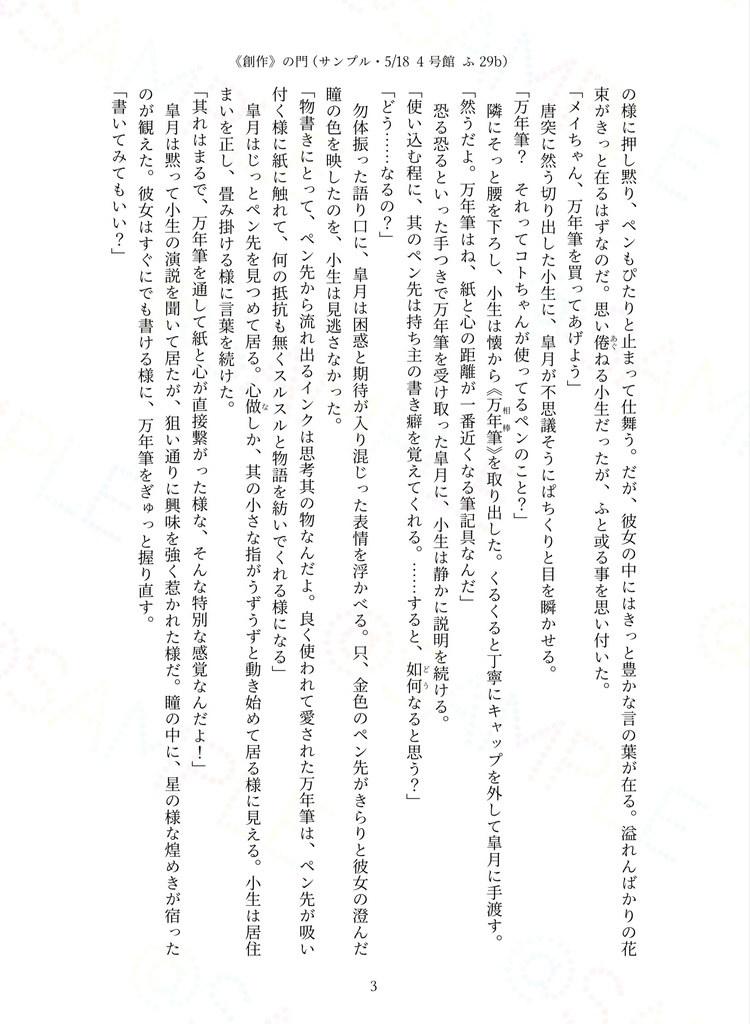 《創作》の門（サンプル・5/18 4号館 ふ29b）
の様に押し黙り、ペンもぴたりと止まって仕舞う。だが、彼女の中にはきっと豊かな言の葉が在る。溢れんばかりの花
束がきっと在るはずなのだ。思い倦ねる小生だったが、ふと或る事を思い付いた。
「メイちゃん、万年筆を買ってあげよう」
唐突に然う切り出した小生に、皐月が不思議そうにぱちくりと目を瞬かせる。
「万年筆？　それってコトちゃんが使ってるペンのこと？」
隣にそっと腰を下ろし、小生は懐から《万年筆》を取り出した。くるくると丁寧にキャップを外して皐月に手渡す。
「然うだよ。万年筆はね、紙と心の距離が一番近くなる筆記具なんだ」
恐る恐るといった手つきで万年筆を受け取った皐月に、小生は静かに説明を続ける。
「使い込む程に、其のペン先は持ち主の書き癖を覚えてくれる。……すると、如何なると思う？」
「どう……なるの？」
勿体振った語り口に、皐月は困惑と期待が入り混じった表情を浮かべる。只、金色のペン先がきらりと彼女の澄んだ
瞳の色を映したのを、小生は見逃さなかった。
「物書きにとって、ペン先から流れ出るインクは思考其の物なんだよ。良く使われて愛された万年筆は、ペン先が吸い
付く様に紙に触れて、何の抵抗も無くスルスルと物語を紡いでくれる様になる」
皐月はじっとペン先を見つめて居る。心做しか、其の小さな指がうずうずと動き始めて居る様に見える。小生は居住
まいを正し、畳み掛ける様に言葉を続けた。
「其れはまるで、万年筆を通して紙と心が直接繋がった様な、そんな特別な感覚なんだよ！」
皐月は黙って小生の演説を聞いて居たが、狙い通りに興味を強く惹かれた様だ。瞳の中に、星の様な煌めきが宿った
のが観えた。彼女はすぐにでも書ける様に、万年筆をぎゅっと握り直す。
「書いてみてもいい？」
3